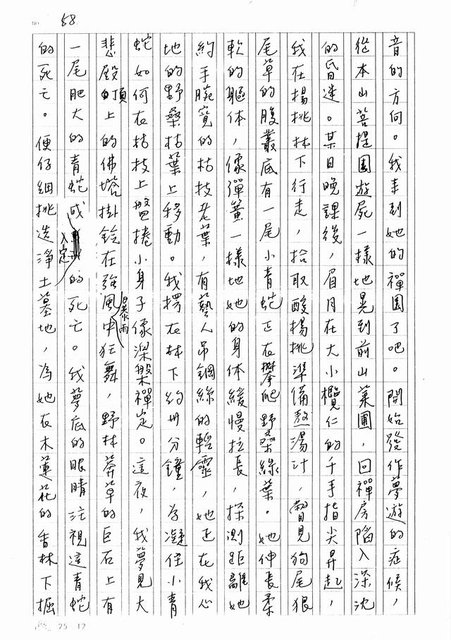 58
音的方向。我来到她的禪園了吧。開始發作夢遊的症候,
從本山菩提園遊屍一樣地晃到前山菜圃,回禪房陷入深沈
的昏迷。某日晚課後,眉月在大小欖仁的千手指尖昇起,
我在揚桃林下行走,拾取酸揚桃準備熬湯汁,瞥見狗尾狼
尾草的腹叢底有一尾小青蛇正在攀爬野桑綠葉。她伸長柔
軟的軀体,像彈簧一樣地她的身体緩慢拉長,探測距離她
約手腕寬的枯枝老葉,有藝人吊鋼絲的輕靈,她正在我心
地的野桑枯葉上移動。我撐在林下約卅分鐘,為凝住小青
蛇如何在枯枝上盤捲小身子像涅槃禪定。這夜,我夢見大
悲殿頂上的佛塔掛鈴在強風暴雨中狂舞,野林莽草的巨石上有
一尾肥大的青蛇或入定的死亡。我夢底的眼睛注視這青蛇
的死亡。便仔細挑选淨土墓地,為她在木蓮花的香林下掘